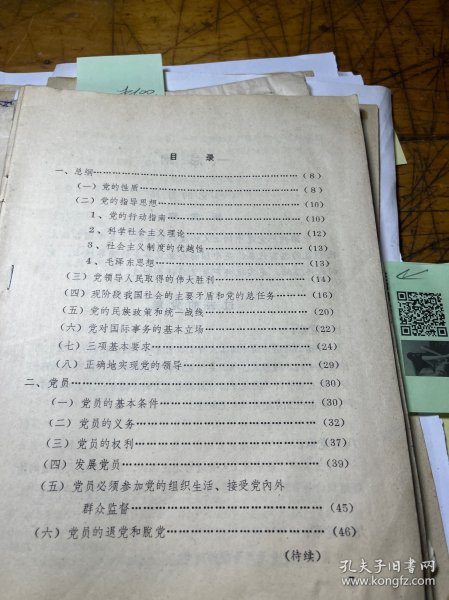 目录
一、总纲……(8)
(一)党的性质……(8)
(二)党的指导思想……(10)
1、党的行动指南……(10)
2、科学社会主义理论……(12)
3、社会主义制度的优越性……(13)
4、毛泽东思想……(13)
(三)党领导人民取得的伟大胜利……(14)
(四)现阶段我国社会的主要矛盾和党的总任务……(16)
(五)党的民族政策和统一战线……(20)
(六)党对国际事务的基本立场……(22)
(七)三项基本要求……(24)
(八)正确地实现党的领导……(29)
二、党员……(30)
(一)党员的基本条件……(30)
(二)党员的义务……(32)
(三)党员的权利……(37)
(四)发展党员……(39)
(五)党员必须参加党的组织生活、接受党内外
群众监督……(45)
(六)党员的退党和脱党……(46)
(待续)
孔夫子旧书网
www.kongfz.com